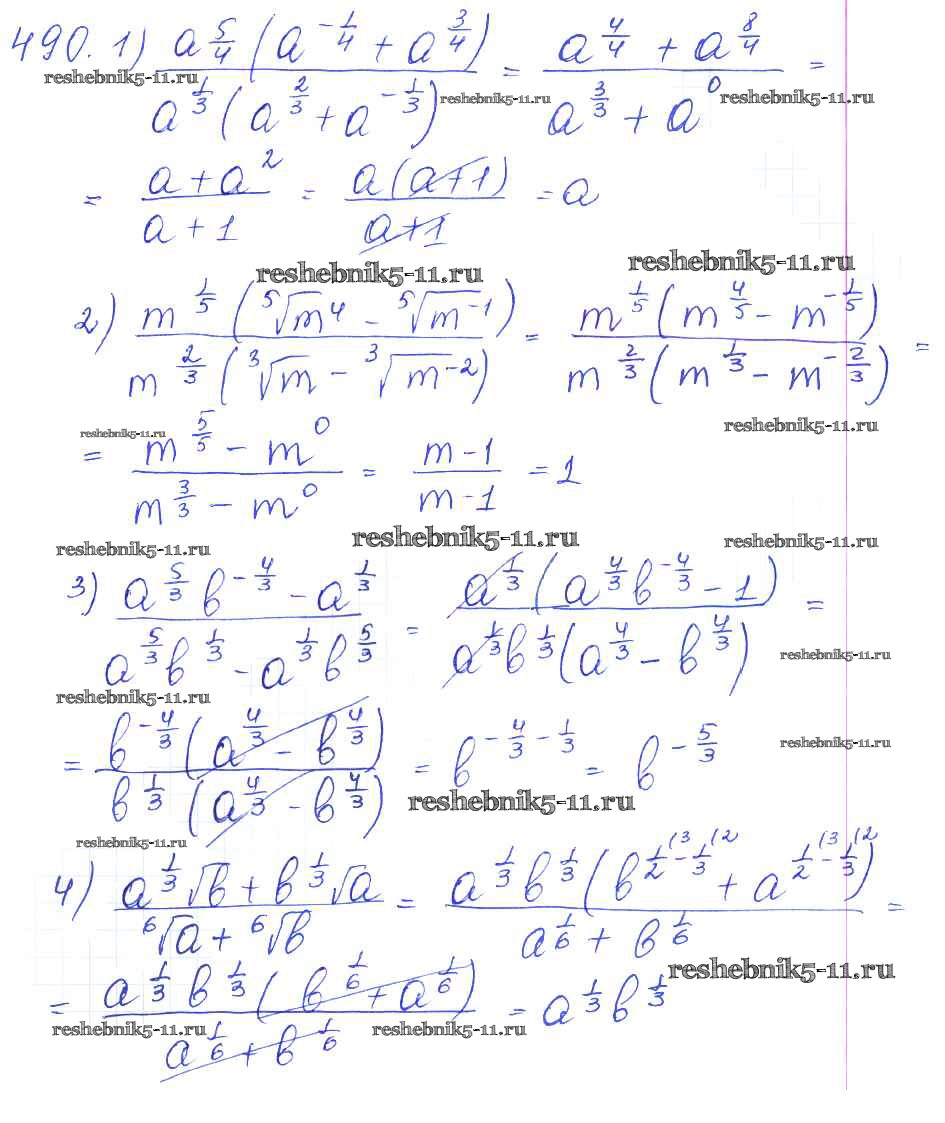 490. 1) a^(5/4) (a^(-1/4) + a^(3/4)) / a^(1/3) (a^(2/3) + a^(-1/3)) = (a^(4/4) + a^(8/4)) / (a^(3/3) + a^0) =
reshebnik5-11.ru reshebnik5-11.ru reshebnik5-11.ru
= (a + a^2) / (a + 1) = a(a+1) / (a+1) = a
reshebnik5-11.ru reshebnik5-11.ru
2) m^(1/5) (⁵√m^4 - ⁵√m^(-1)) / m^(2/3) (³√m - ³√m^(-2)) = m^(1/5) (m^(4/5) - m^(-1/5)) / m^(2/3) (m^(1/3) - m^(-2/3)) =
reshebnik5-11.ru reshebnik5-11.ru
= (m^(5/5) - m^0) / (m^(3/3) - m^0) = (m-1) / (m-1) = 1
reshebnik5-11.ru reshebnik5-11.ru reshebnik5-11.ru
3) (a^(5/3) b^(-4/3) - a^(1/3)) / (a^(5/3) b^(1/3) - a^(1/3) b^(5/3)) = a^(1/3) (a^(4/3) b^(-4/3) - 1) / a^(1/3) b^(1/3) (a^(4/3) - b^(4/3)) =
reshebnik5-11.ru
reshebnik5-11.ru
= b^(-4/3) (a^(4/3) - b^(4/3)) / b^(1/3) (a^(4/3) - b^(4/3)) = b^(-4/3 - 1/3) = b^(-5/3)
reshebnik5-11.ru
reshebnik5-11.ru
reshebnik5-11.ru
4) (a^(1/3) √b + b^(1/3) √a) / (⁶√a + ⁶√b) = a^(1/3) b^(1/3) (b^(1/2(3 - 1/3(2) + a^(1/2(3 - 1/3(2)) / (a^(1/6) + b^(1/6)) =
reshebnik5-11.ru
= a^(1/3) b^(1/3) (b^(1/6) + a^(1/6)) / (a^(1/6) + b^(1/6)) = a^(1/3) b^(1/3)
reshebnik5-11.ru reshebnik5-11.ru